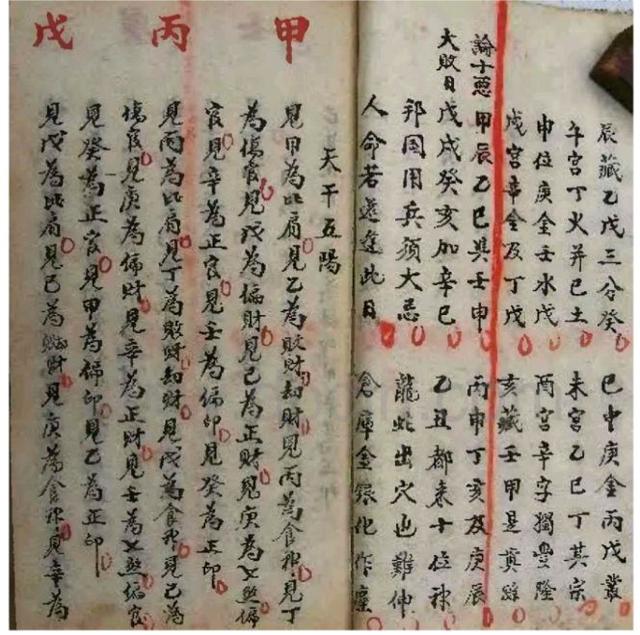 辰藏乙戊三分癸 巳中庚金丙戊叢
午宮丁火并己土 未宮乙己丁其宗
申位庚金壬水戊 酉宮辛字獨豐隆
戌宮辛金及丁戊 亥藏壬甲是真踪
論十惡 甲辰乙巳與壬申 丙申丁亥及庚辰
大敗日 戊戌癸亥加辛巳 乙丑都来十位神
邦国用兵須大忌 龍蛇出穴也難伸
人命若逢此日 倉庫金銀化作塵
天干五陽
甲
見甲為比肩見乙為敗財刼財見丙為食神見丁
為傷官見戊為偏財見己為正財見庚為七煞偏
官見辛為正官見壬為偏印見癸為正印
丙
見丙為比肩見丁為敗財刼財見戊為食神見己為
傷官見庚為偏財見辛為正財見壬為七煞偏官
見癸為正官見甲為偏印見乙為正印
戊
見戊為比肩見己為財見庚為食神見辛為